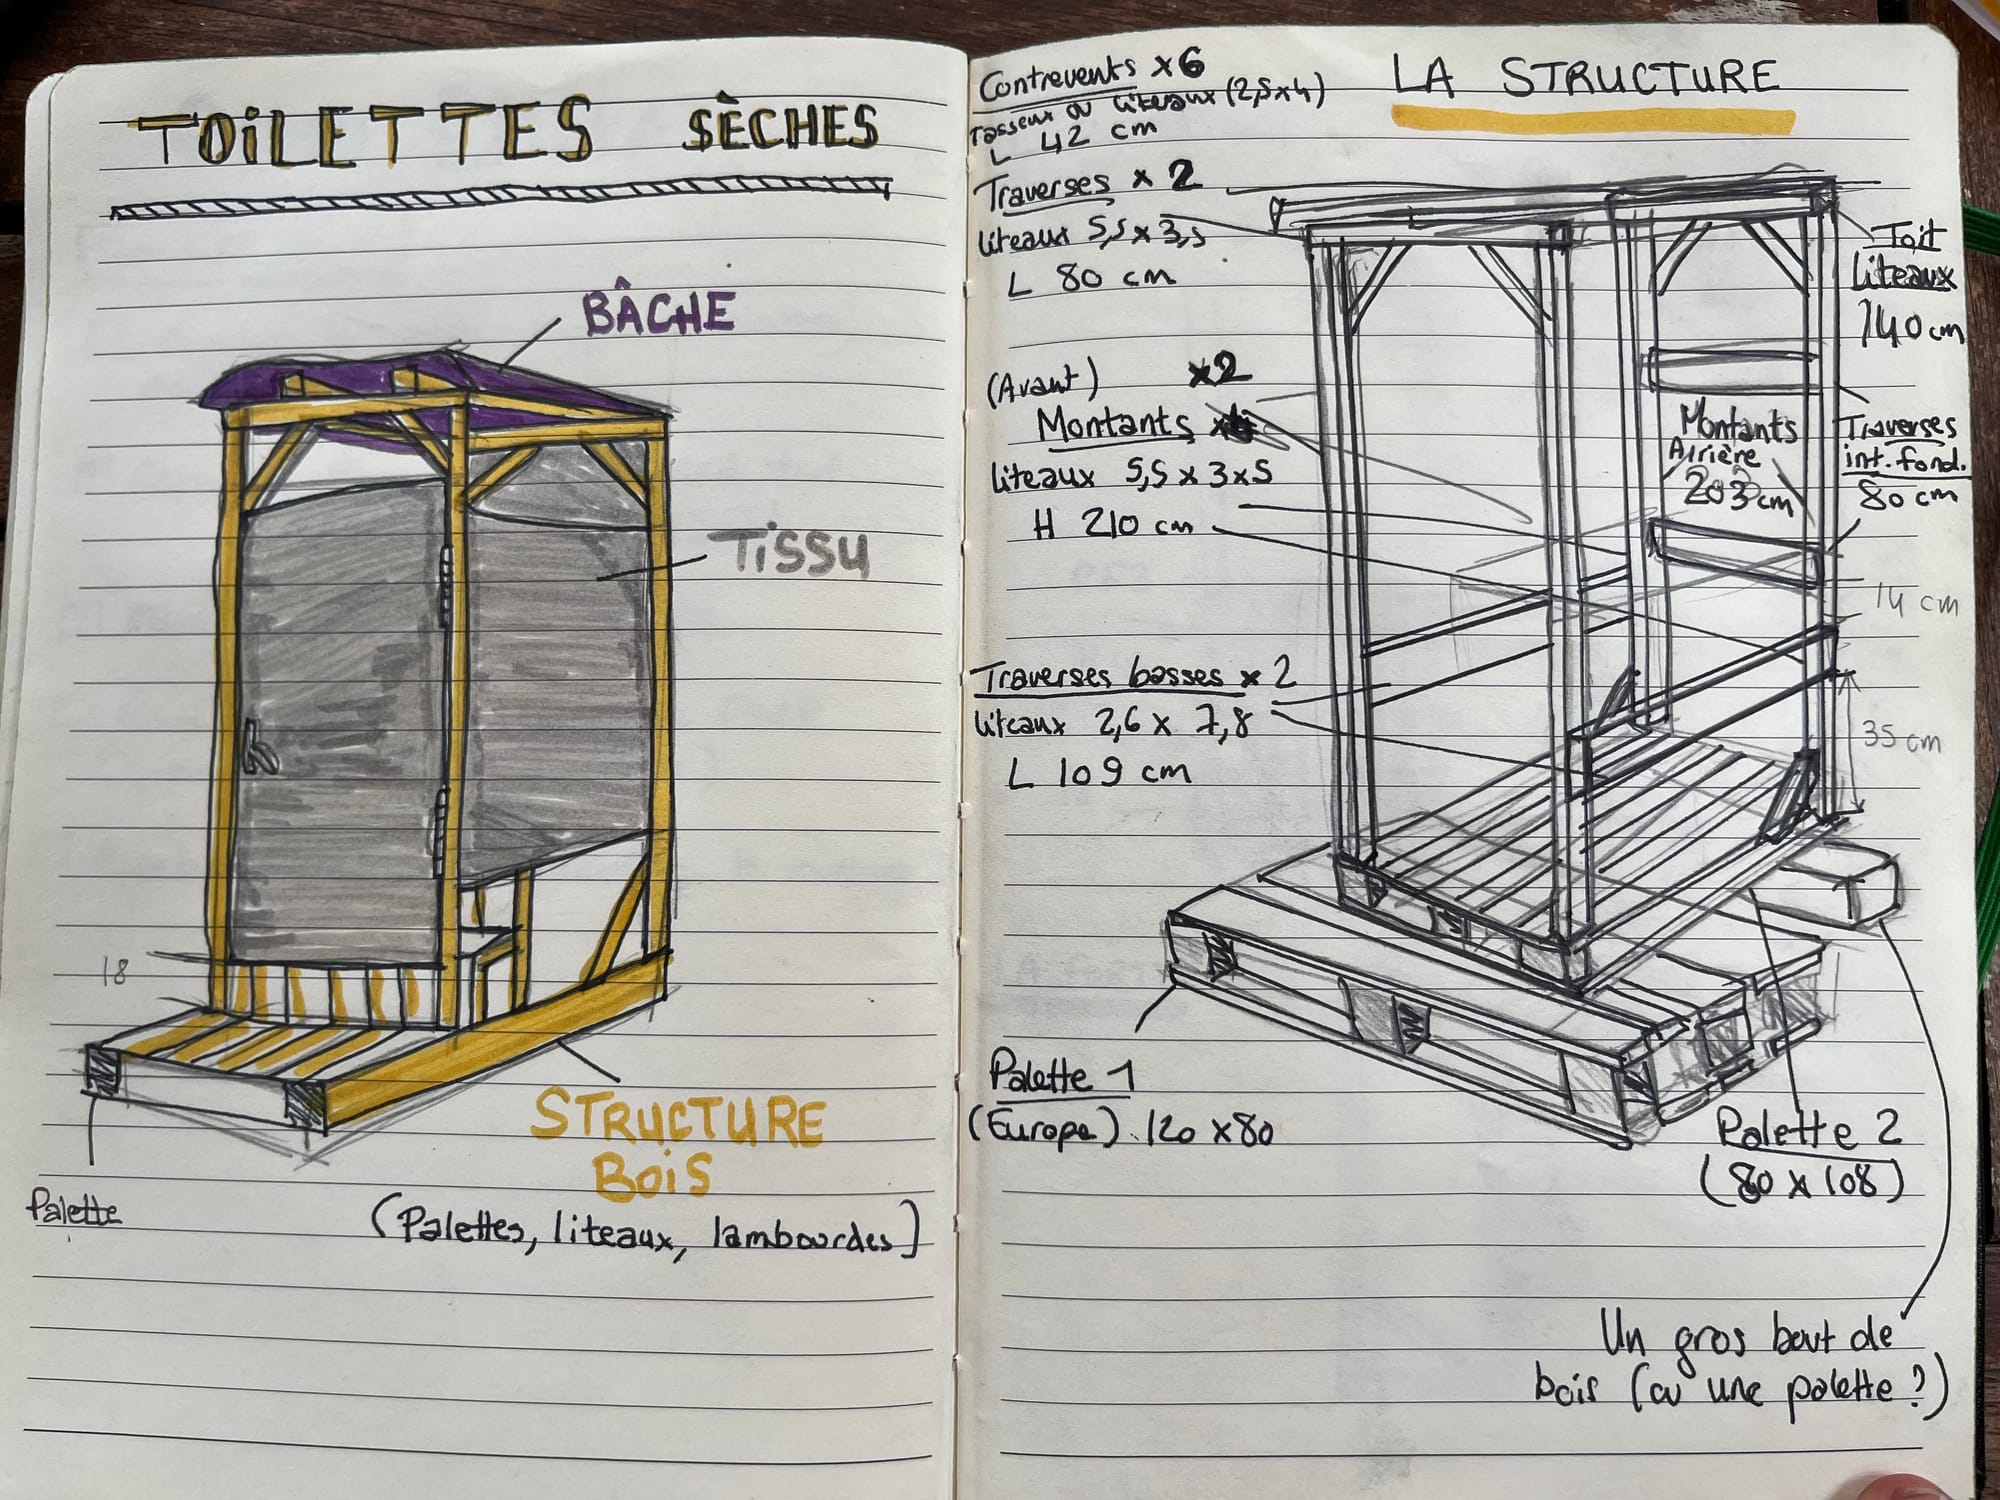 TOiLETTES SÈCHES
BÂCHE
TiSSU
18
STRUCTURE
BOiS
Palette
(Palettes, liteaux, lambourdes)
LA STRUCTURE
Contrevents x6
Tasseaux ou liteaux (2,5x4)
L 42 cm
Traverses x 2
liteaux 5,5 x 3,5
L 80 cm
(Avant) x2
Montants
liteaux 5,5 x 3x5
H 210 cm
Traverses basses x 2
liteaux 2,6 x 7,8
L 109 cm
Palette 1
(Europe) 120 x80
Toit
liteaux
140 cm
Montants
Arrière
203 cm
Traverses
int. fond.
80 cm
14 cm
35 cm
Palette 2
(80 x 108)
Un gros bout de
bois (ou une palette ?)